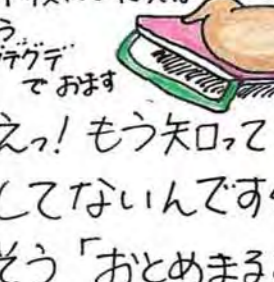 う
デグデ
でおます
えっ!もう知って
してないんです
そう「おとめまる